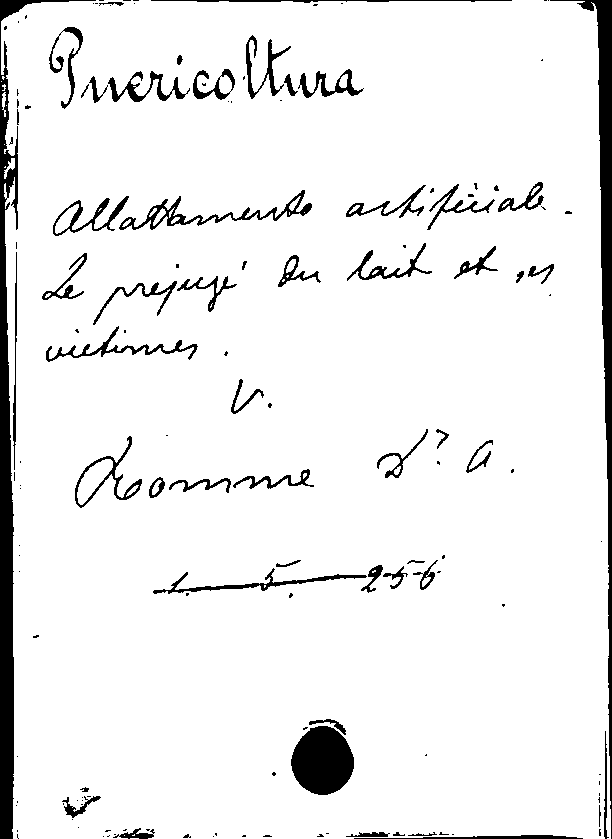 Puericoltura
Allattamento artificiale.
Le préjugé du lait et ses
victimes.
V.
Romme Dr. A.
1. 5. 256